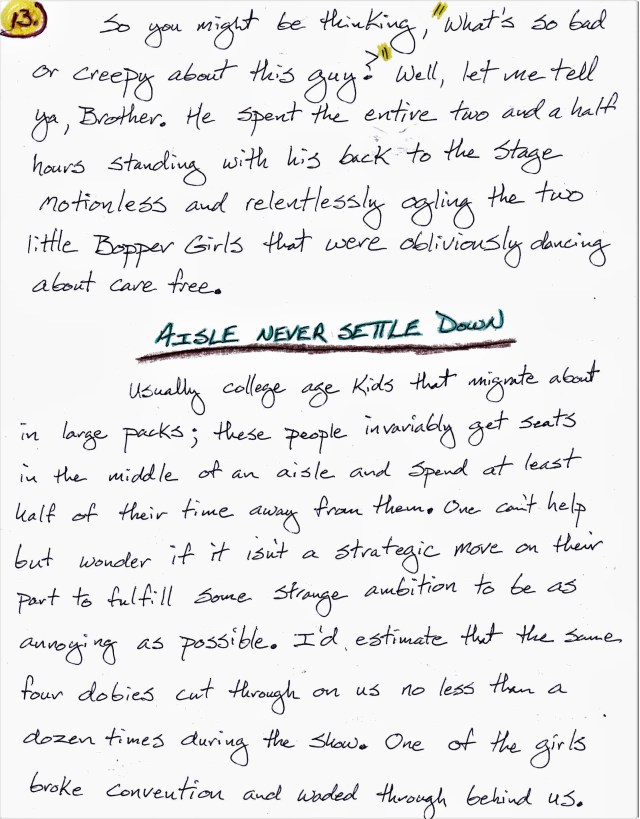 13.
So you might be thinking, "What's so bad
or creepy about this guy?" Well, let me tell
ya, Brother. He spent the entire two and a half
hours standing with his back to the stage
motionless and relentlessly ogling the two
little Bopper Girls that were obliviously dancing
about care free.
AISLE NEVER SETTLE DOWN
Usually college age kids that migrate about
in large packs; these people invariably get seats
in the middle of an aisle and spend at least
half of their time away from them. One can't help
but wonder if it isn't a strategic move on their
part to fulfill some strange ambition to be as
annoying as possible. I'd estimate that the same
four dobies cut through on us no less than a
dozen times during the show. One of the girls
broke convention and waded through behind us.